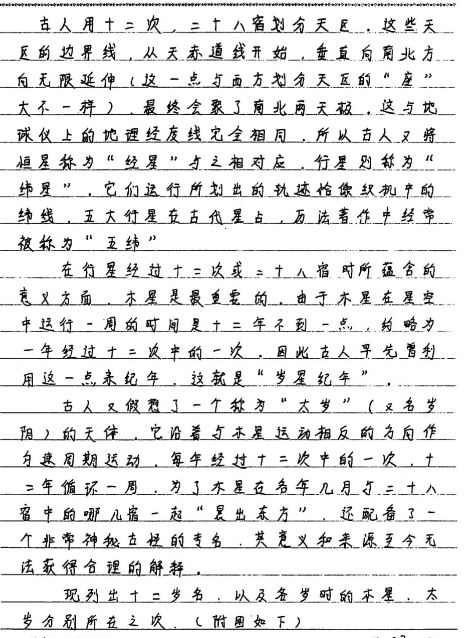 古人用十二次，二十八宿划分天区，这些天
区的边界线，从天赤道线开始，垂直向南北方
向无限延伸（这一点与西方划分天区的“座”
大不一样），最终会聚了南北两天极，这与地
球仪上的地理经度线完全相同，所以古人又将
恒星称为“经星”与之相对应，行星则称为“
纬星”，它们运行所划出的轨迹恰像织机中的
纬线，五大行星在古代星占，历法著作中经常
被称为“五纬”
在行星经过十二次或二十八宿时所蕴含的
意义方面，木星是最重要的，由于木星在星空
中运行一周的时间是十二年不到一点，约略为
一年经过十二次中的一次，因此古人早先曾利
用这一点来纪年，这就是“岁星纪年”，
古人又假想了一个称为“太岁”（又名岁
阴）的天体，它沿着与木星运动相反的方向作
匀速周期运动，每年经过十二次中的一次，十
二年循环一周，为了木星在各年几月与二十八
宿中的哪几宿一起“晨出东方”，还配备了一
个非常神秘古怪的专名，其意义和来源至今无
法获得合理的解释，
现列出十二岁名，以及各岁时的木星，太
岁分别所在之次，（附图如下）